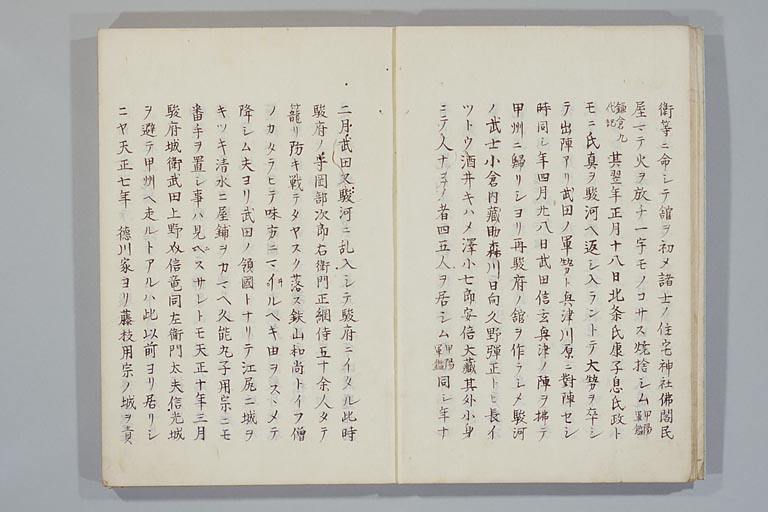 衛等ニ命シテ舘ヲ初メ諸士ノ住宅神社佛閣民
屋マテ火ヲ放チ一宇モノコサス燒捨シム甲陽軍鑑
鎌倉九代記其翌年正月十八日北条氏康子息氏政ト
モニ氏真ヲ駿河ヘ返シ入ラントテ大勢ヲ卒シ
テ出陣アリ武田ノ軍勢ト興津川原ニ對陣セシ
時同シ年四月廿八日武田信玄興津ノ陣ヲ拂テ
甲州ニ歸リシヨリ再駿府ノ舘ヲ作ラシメ駿河
ノ武士小倉内藏助森川日向久野彈正トヒ長イ
ツトウ酒井キハメ澤小七郎安倍大藏其外小身
ニテ人ナヨノ者四五人ヲ居シム甲陽軍鑑同シ年十
二月武田又駿河ニ乱入シテ駿府ニイタル此時
駿府ノ守岡部次郎右衛門正綱侍五十余人タテ
籠リ防キ戦テタヤスク落ス鉄山和尚トイフ僧
ノカタラヒテ味方ニマイルヘキ由ヲスヽメテ
降シム夫ヨリ武田ノ領國トナリテ江尻ニ城ヲ
キツキ清水ニ屋鋪ヲカマヘ久能丸子用宗ニモ
番手ヲ置シ事ハ見ヘスサレトモ天正十年三月
駿府城衛武田上野介信竜同左衛門太夫信光城
ヲ避テ甲州ヘ走ルトアルハ此以前ヨリ居リシ
ニヤ天正七年 德川家ヨリ藤枝用宗ノ城ヲ責